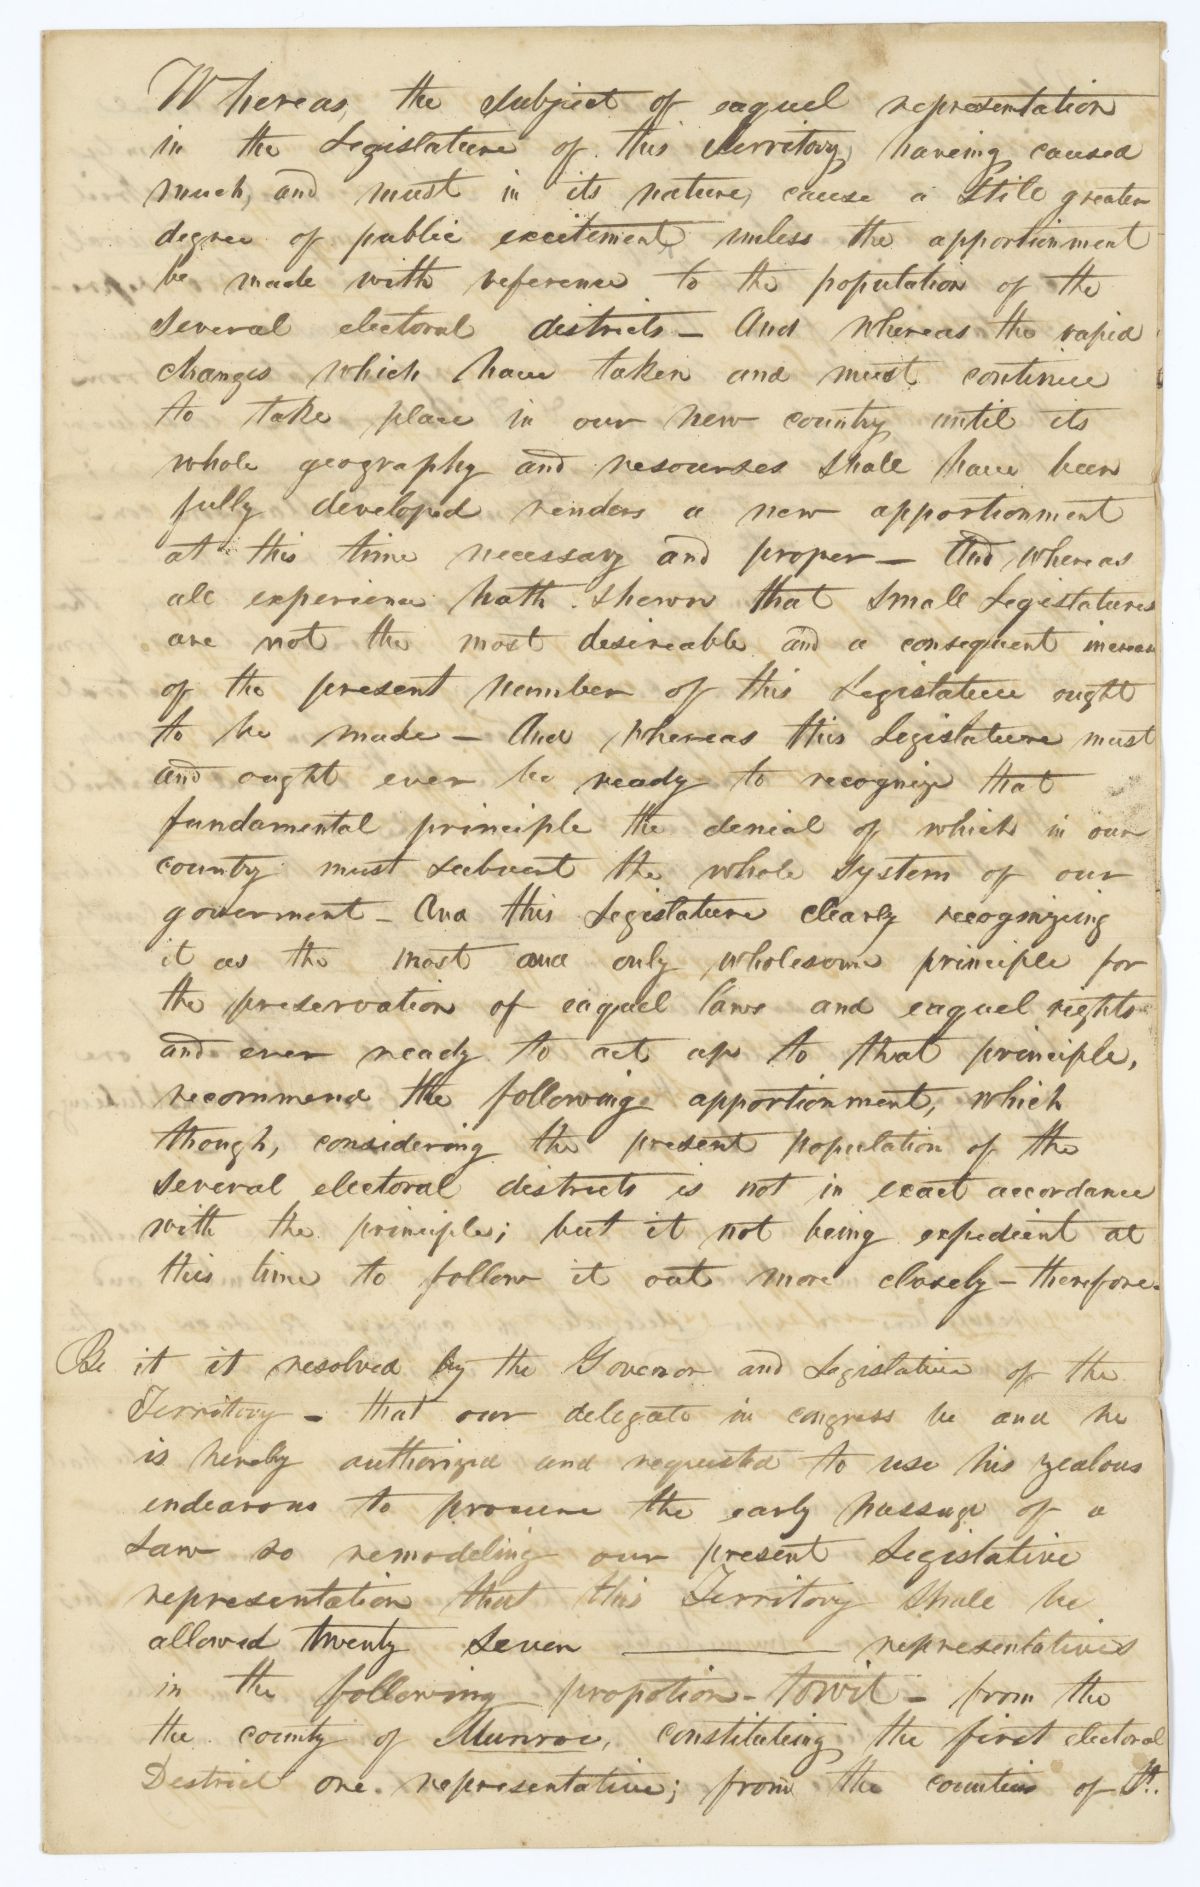 Whereas, the subject of eaquel representation
in the Legislature of this Territory, having caused
much, and must in its nature, cause a still greater
degree of public excitement, unless the apportionment
be made with reference to the population of the
several electoral districts — And whereas the rapid
changes which have taken and must continue
to take place in our new country until its
whole geography and resourses shall have been
fully developed renders a new apportionment
at this time necessary and proper — And whereas
all experience hath shewn that small Legislatures
are not the most desireable and a consequent increase
of the present number of this Legislature ought
to be made — And whereas this Legislature must
and ought ever be ready to recognize that
fundamental principle the denial of which in our
county must subvert the whole system of our
goverment — And this Legislature clearly recognizing
it as the most and only wholesome principle for
the preservation of eaquel laws and eaquel rights
and ever ready to act up to that principle,
recommend the following apportionment, which
though, considering the present population of the
several electoral districts is not in exact accordance
with the principle; but it not being expedient at
this time to follow it out more closely — therefore.
Be it it resolved by the Governor and Legislative of the
Territory — that our delegate in congress be and he
is hereby authorized and requested to use his zealous
endeavous to procure the early passage of a
Law so remodeling our present Legislative
representation that this Territory shall be
allowed twenty seven ———— representatives
in the following propotion — towit — from the
the county of Munroe, constituting the first electoral
District one representative; from the counties of St.